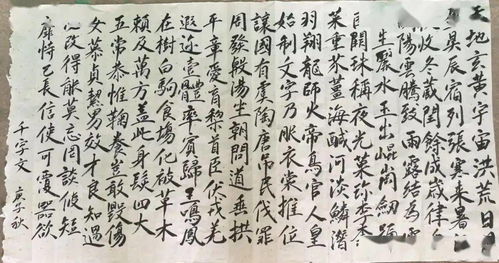 天地玄黄宇宙洪荒日
昃辰宿列張寒来暑
收冬藏閏餘成歲律
陽雲騰致雨露結為
生麗水玉出崐崗劔號
巨闕珠稱夜光菓珍李柰
菜重芥薑海鹹河淡鱗潛
羽翔龍師火帝鳥官人皇
始制文字乃服衣裳推位
讓國有虞陶唐吊民伐罪
周發殷湯坐朝問道垂拱
平章愛育黎首臣伏戎羌
遐迩壹體率賓歸王鳴鳳
在樹白駒食場化被草木
賴及萬方蓋此身髮四大
五常恭惟鞠養豈敢毀傷
女慕貞絜男效才良知過
必改得能莫忘罔談彼短
靡恃己長信使可覆器欲
千字文 庚子秋